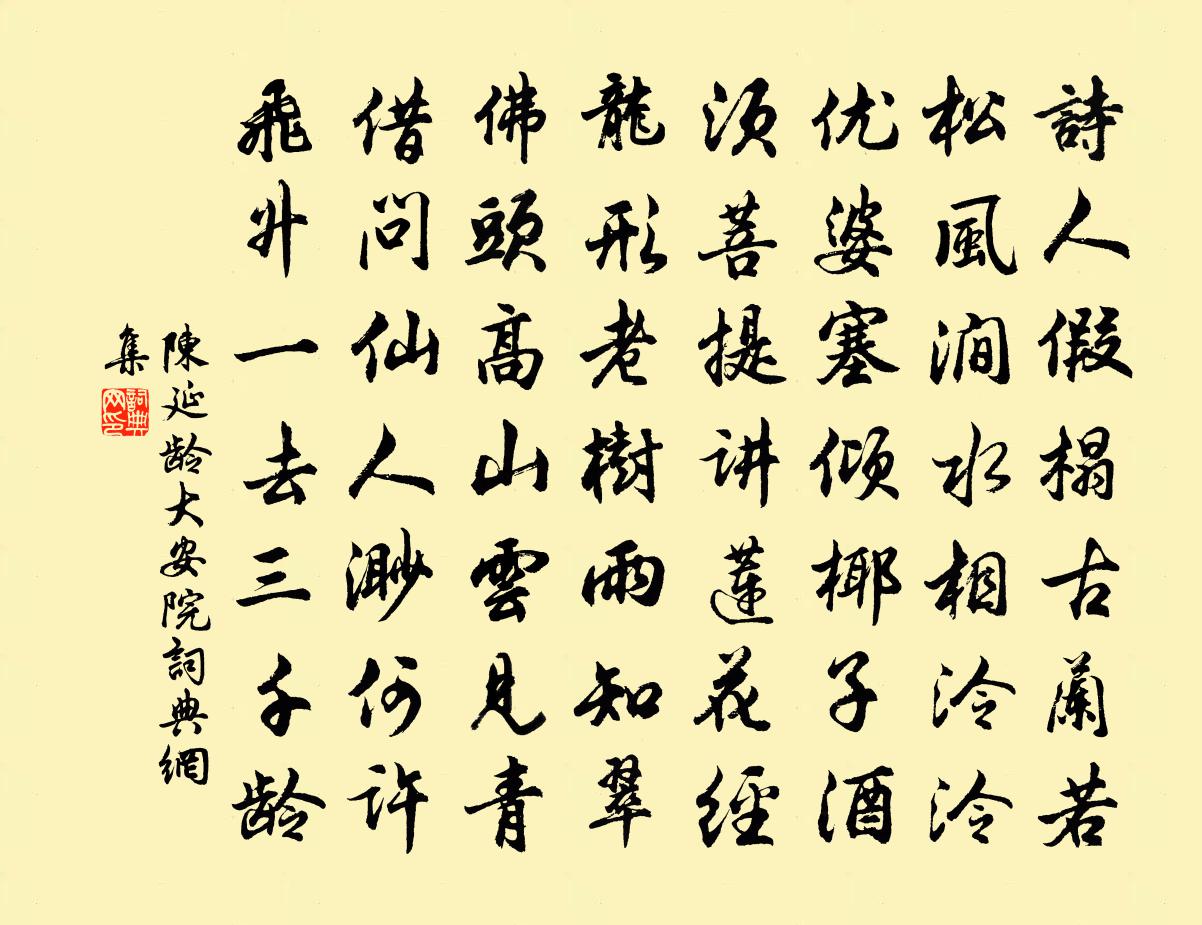 詩人假榻古蘭若
松風澗水相泠泠
优婆塞倾椰子酒
须菩提讲蓮花經
龍形老樹雨知翠
佛頭高山雲見青
借問仙人渺何许
飛升一去三千龄
陳延龄大安院詞典網
集
詞典網印